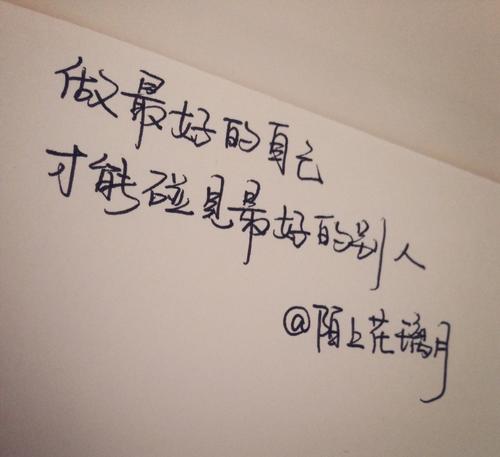 做最好的自己
才能碰见最好的别人
@陌上花璃月